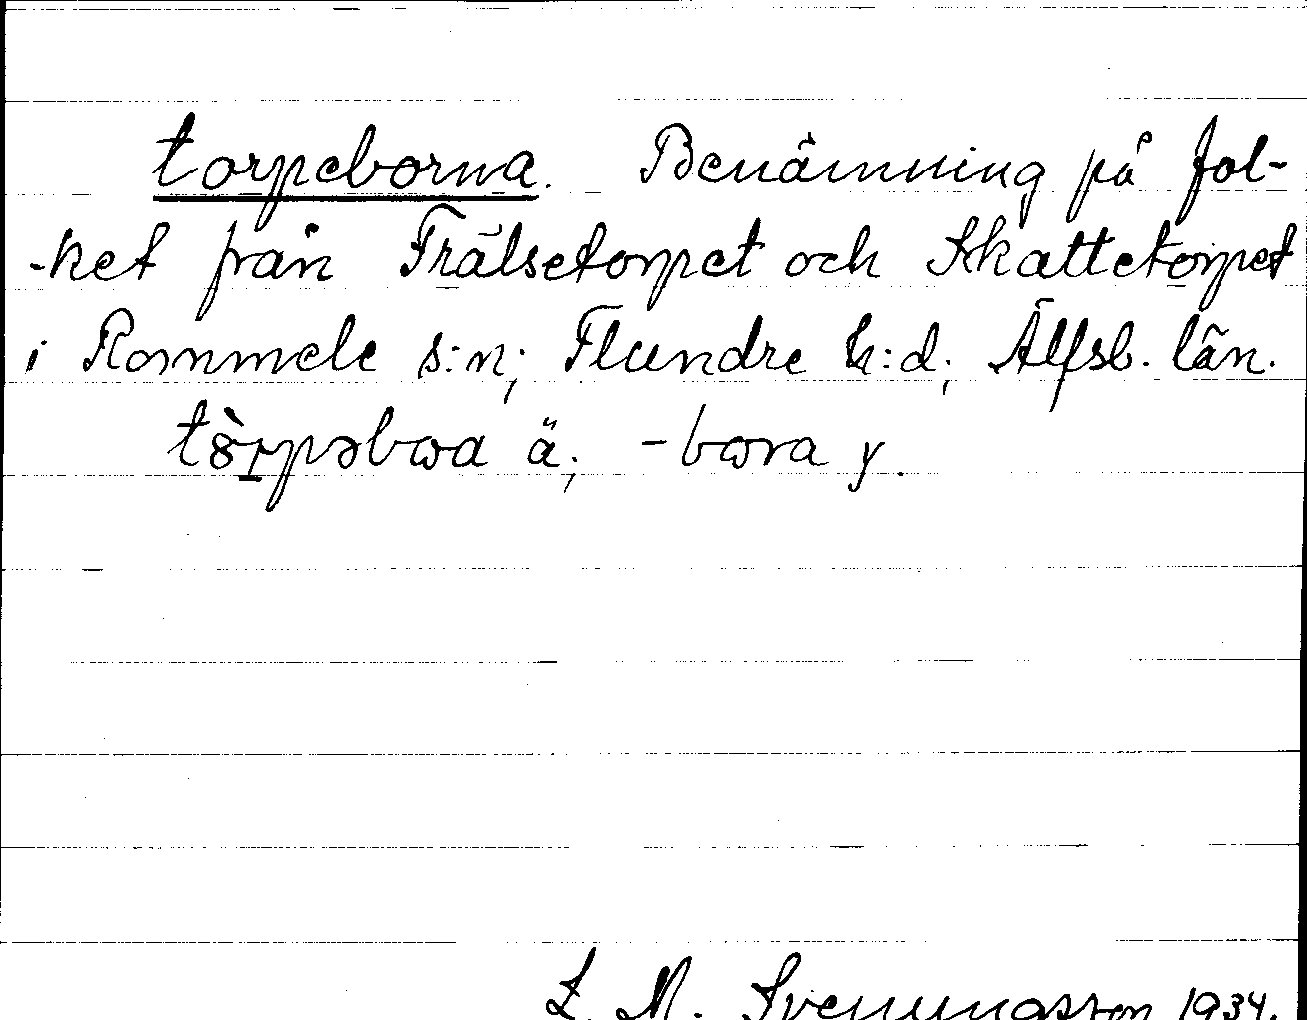 torpeborna. Benämning på fol-
-ket från Frälsetorpet och Skattetorpet
i Rommele s:n; Flundre h:d; Älfsb. län.
tò̈rpəbωa ä; -bωra y.
L. M. Svenungsson 1934.